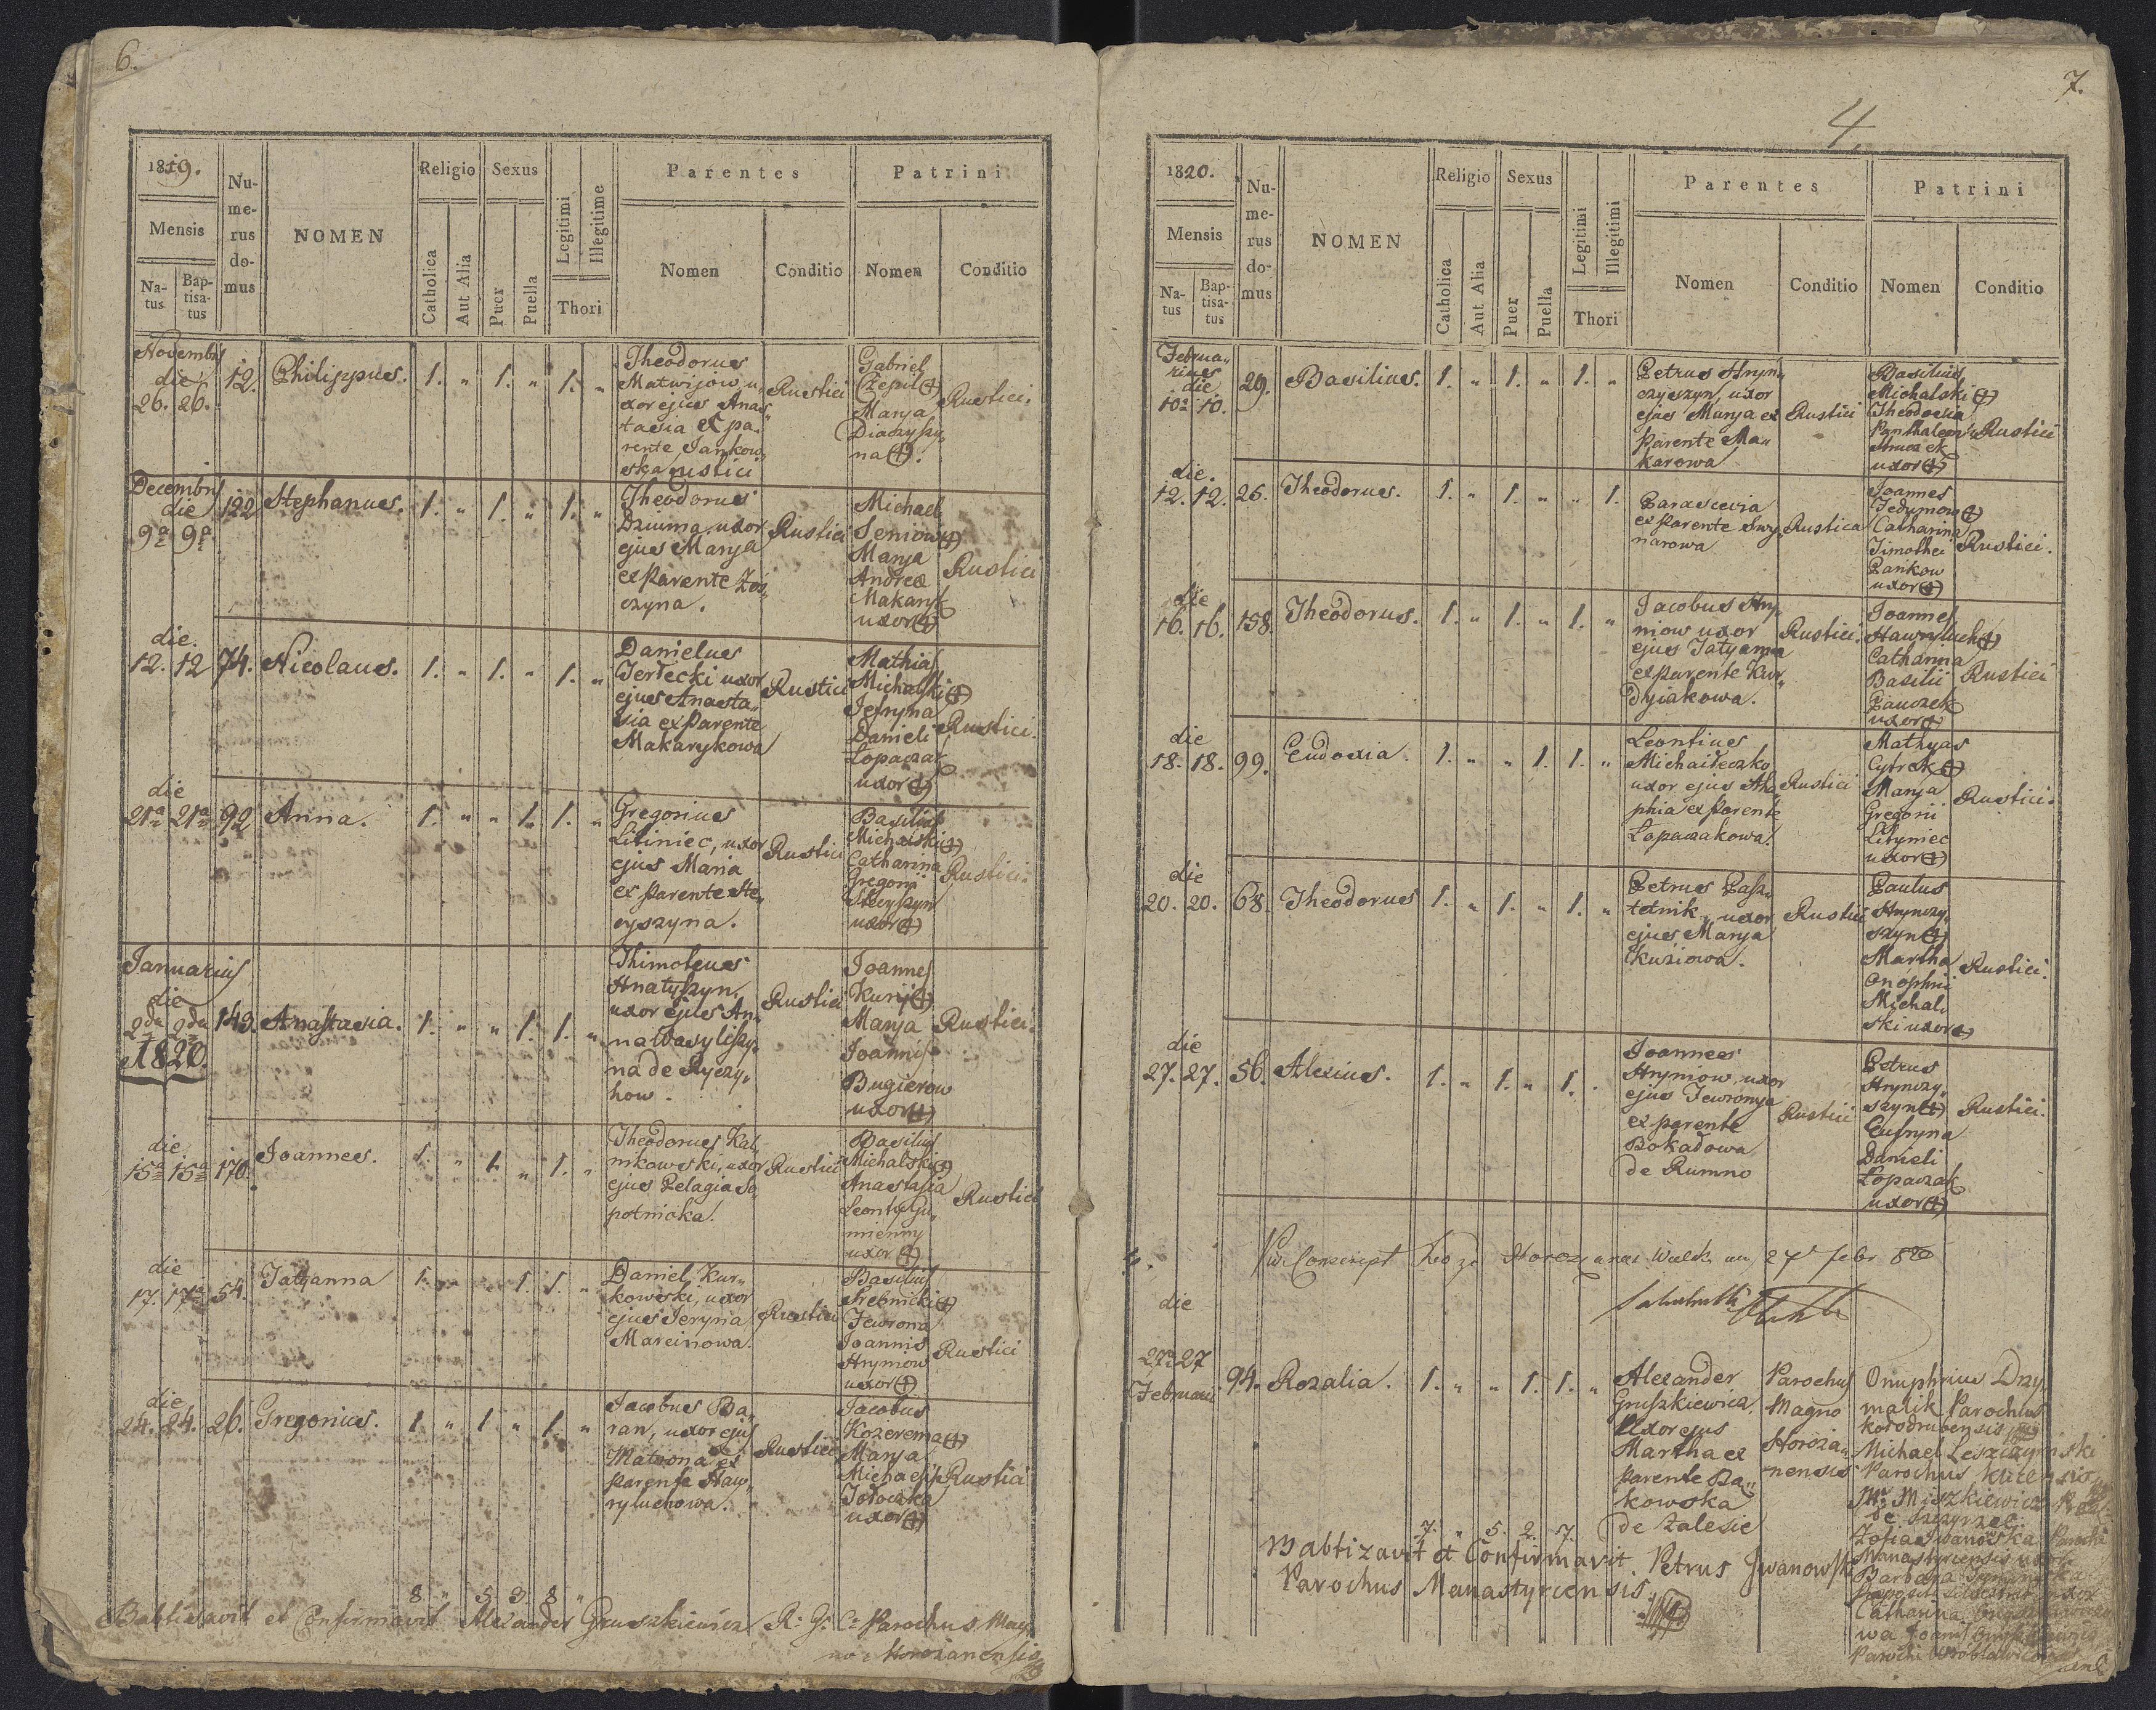 6.
1819.
Mensis
Na-
tus
Bap-
tisa-
tus
Nu-
me-
rus
do-
mus
NOMEN
Religio
Catholica
Aut Alia
Sexus
Puer
Puella
Legitimi
Illegitime
Thori
Parentes
Nomen
Conditio
Patrini
Nomen
Conditio
Novembris
die
26. 26.
12.
Philippus.
1. " 1. " 1. "
Theodorus
Matwijow, u,
xor ejus Anas,
tasia ex pa,
rente Jankow,
ska rustici
Rustici
Gabriel
Marya
Diaczyszy,
na (+).
Rustici.
Decembris
die
9a 9a
122
Stephanus.
1. " 1. " 1. "
Theodorus
Dziuma, uxor
ejus Marya
ex Parente
czyna.
Rustici
Michael
Seniow (+)
Marya
Andreae
Makaryk
uxor (+)
Rustici
die.
12. 12
74.
Nicolaus.
1. " 1. " 1. "
Danielus
Terlecki uxor
ejus Anasta,
sia ex Parente
Makarykowa
Rustici
Mathias
Michalski (+)
Jefryna
Danieli
Łopaczak
uxor (+)
Rustici.
die
21a 21a
92
Anna.
1. " " 1. 1. "
Gregorius
Litiniec, uxor
ejus Maria
ex Parente Ste,
cyszyna.
Rustici
Basilius
Michalski (+)
Catharina
Gregorii
Stecyszyn
uxor (+)
Rustici.
Januarius
die
2da 2da
1820.
149.
Anastasia.
1. " " 1. 1. "
Thimoteus
Hnatyszyn,
uxor ejus An,
na Wasyliszy,
na de Ryczy,
how.
Rustici
Joannes
Kurij (+)
Marya
Joannis
Bugierow
uxor (+)
Rustici.
die
15a 15a
170.
Joannes.
1. " 1. " 1. "
Theodorus Kal,
nikowski, uxor
ejus Pelagia So,
potnicka.
Rustici
Basilius
Michalski (+)
Anastasia
uxor (+)
Rustici
die
17. 17a
54.
Tatyanna
1. 1. 1. "
Daniel Kur,
kowski, uxor
ejus Jeryna
Marcinowa.
Rustici
Basilius
Srebnicki (+)
Jewrona
Joannis
Hryniow
uxor (+)
Rustici
die
24. 24.
26.
Gregorius.
1 " 1 " 1. "
Jacobus Ba,
ran, uxor ejus
Matrona ex
parente Haw,
ryluchowa.
Rustici
Jacobus
Kozerema (+)
Marya
Michaelis
uxor (+)
Rustici
8 " 5 3. 8 "
Babtisavit et Confirmavit Alexander Gruszkiewicz R. G. C. Parochus Mag,
no Horożanensis
7.
4.
1820.
Mensis
Na-
tus
Bap-
tisa-
tus
Nu-
me-
rus
do-
mus
NOMEN
Religio
Catholica
Aut Alia
Sexus
Puer
Puella
Legitimi
Illegitimi
Thori
Parentes
Nomen
Conditio
Patrini
Nomen
Conditio
Februa,
rius
die
10a 10.
29.
Basilius.
1. " 1. " 1. "
Petrus Hryn,
czyszyn, uxor
ejus Marya ex
Parente Ma,
karowa
Rustici
Basilius
Michalski (+)
Theodosia
uxor (+)
Rustici
die.
12. 12.
26.
Theodorus.
1. " 1. " " 1.
Parascevia
ex Parente Swy,
narowa
Rustica
Joannes
Fedynow (+)
Catharina
Timothei
Pankow
uxor (+)
Rustici.
die
16. 16.
158.
Theodorus.
1. " 1. " 1. "
Jacobus Hry,
niow uxor
ejus Tatyanna
ex parente Kur,
Dyiakowa.
Rustici.
Joannes
Hawryluch (+)
Catharina
Basilii
Panczek
uxor (+)
Rustici
die
18. 18.
99.
Eudoxia.
1. " " 1. 1. "
Leontius
Michaileczko
uxor ejus Aha
phia ex Parente
Łopaczakowa.
Rustici
Mathyas
Cytrak (+)
Marya
Gregorii
Lityniec
uxor (+)
Rustici.
die
20. 20.
68.
Theodorus
1. " 1. " 1. "
Petrus Pasz,
tetnik, uxor
ejus Marya
Kuziowa.
Rustici
Paulus
Hrynczy,
szyn (+)
Martha
Onophrii
Michal,
ski uxor (+)
Rustici.
die
27. 27.
56.
Alexius.
1. " 1. " 1. "
Joannes
Hryniow, uxor
ejus Jewronya
ex parente
Bokadowa
de Rumno
Rustici
Petrus
Hrynczy,
szyn (+)
Eufryna
Danieli
Łopaczak
uxor (+)
Rustici.
27 Febr 820
die
27a 27
Februarii
94.
Rozalia.
1. " " 1. 1. "
Alexander
Gruszkiewicz,
Uxor ejus
Martha ex
parente Ba,
kowska
de Zalesie
Parochus
Magno
Horoża,
nensis
Onuphrius Drzy,
malik Parochus
Kołodrubensis
Michael Leszczynski
Parochus
Miszkiewicz
Zofia Iwanowska
Manastyrcensis uxor
Barbara
Catharina
Parochi
7. " 5. 2. 7.
Babtizavit et Confirmavit. Petrus Iwanowski
Parochus Manastyrcensis.